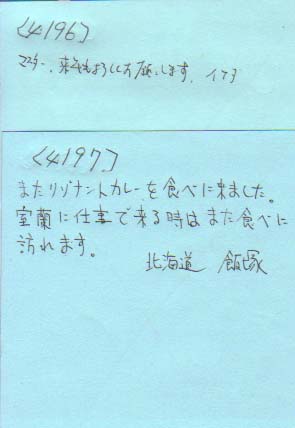 〈4196〉
マスター、来年もよろしくお願いします。イケダ
〈4197〉
またリゾナントカレーを食べに来ました。
室蘭に仕事で来る時はまた食べに
訪れます。
北海道 飯塚